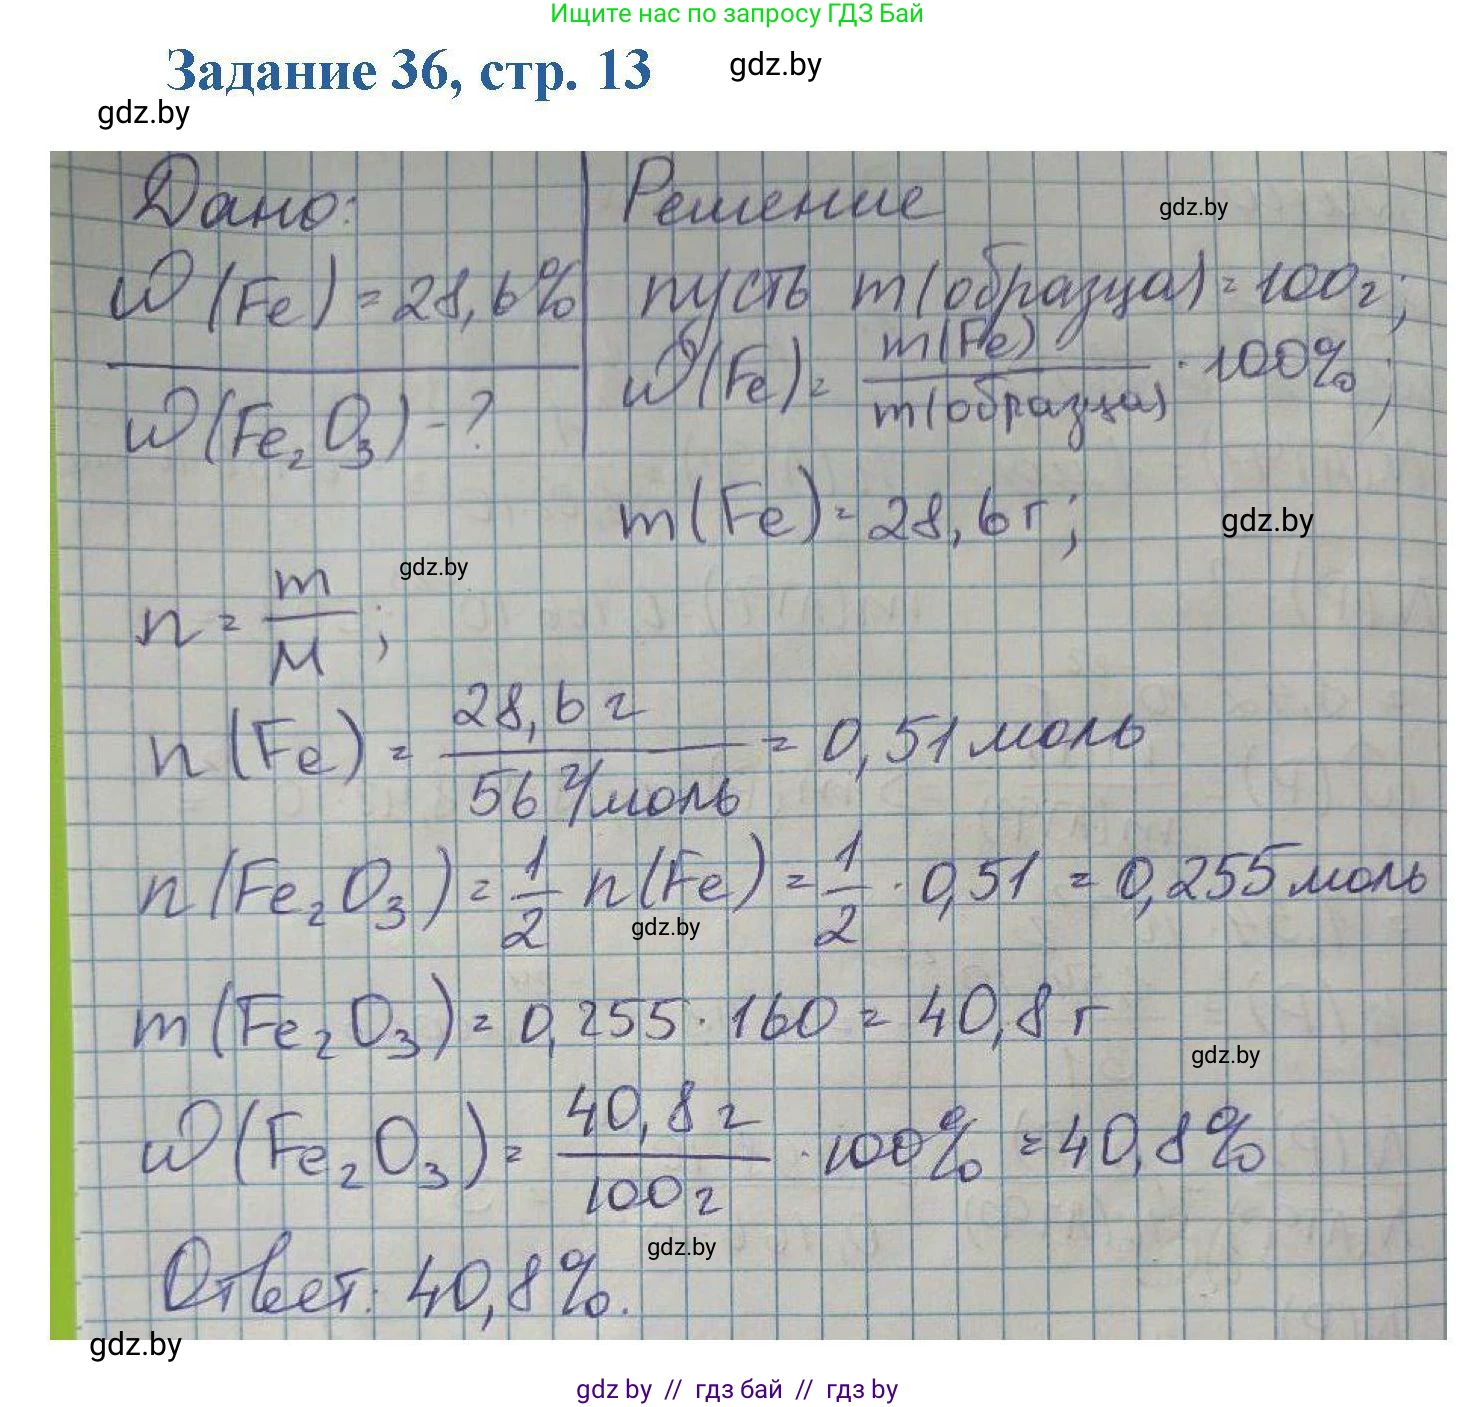 Ищите нас по запросу ГДЗ Бай
Задание 36, стр. 13
gdz.by
gdz.by
Дано:
Решение
gdz.by
w(Fe) = 28,6%
пусть m(образца) = 100г;
w(Fe) = m(Fe)/m(образца) · 100%;
w(Fe₂O₃) - ?
m(Fe) = 28,6 г;
gdz.by
gdz.by
n = m/M;
n(Fe) = 28,6 г/56 г/моль = 0,51 моль
n(Fe₂O₃) = 1/2 n(Fe) = 1/2 · 0,51 = 0,255 моль
gdz.by
m(Fe₂O₃) = 0,255 · 160 = 40,8 г
gdz.by
w(Fe₂O₃) = 40,8 г/100 г · 100% = 40,8%
gdz.by
Ответ: 40,8%.
gdz.by
gdz by // гдз бай // гдз by